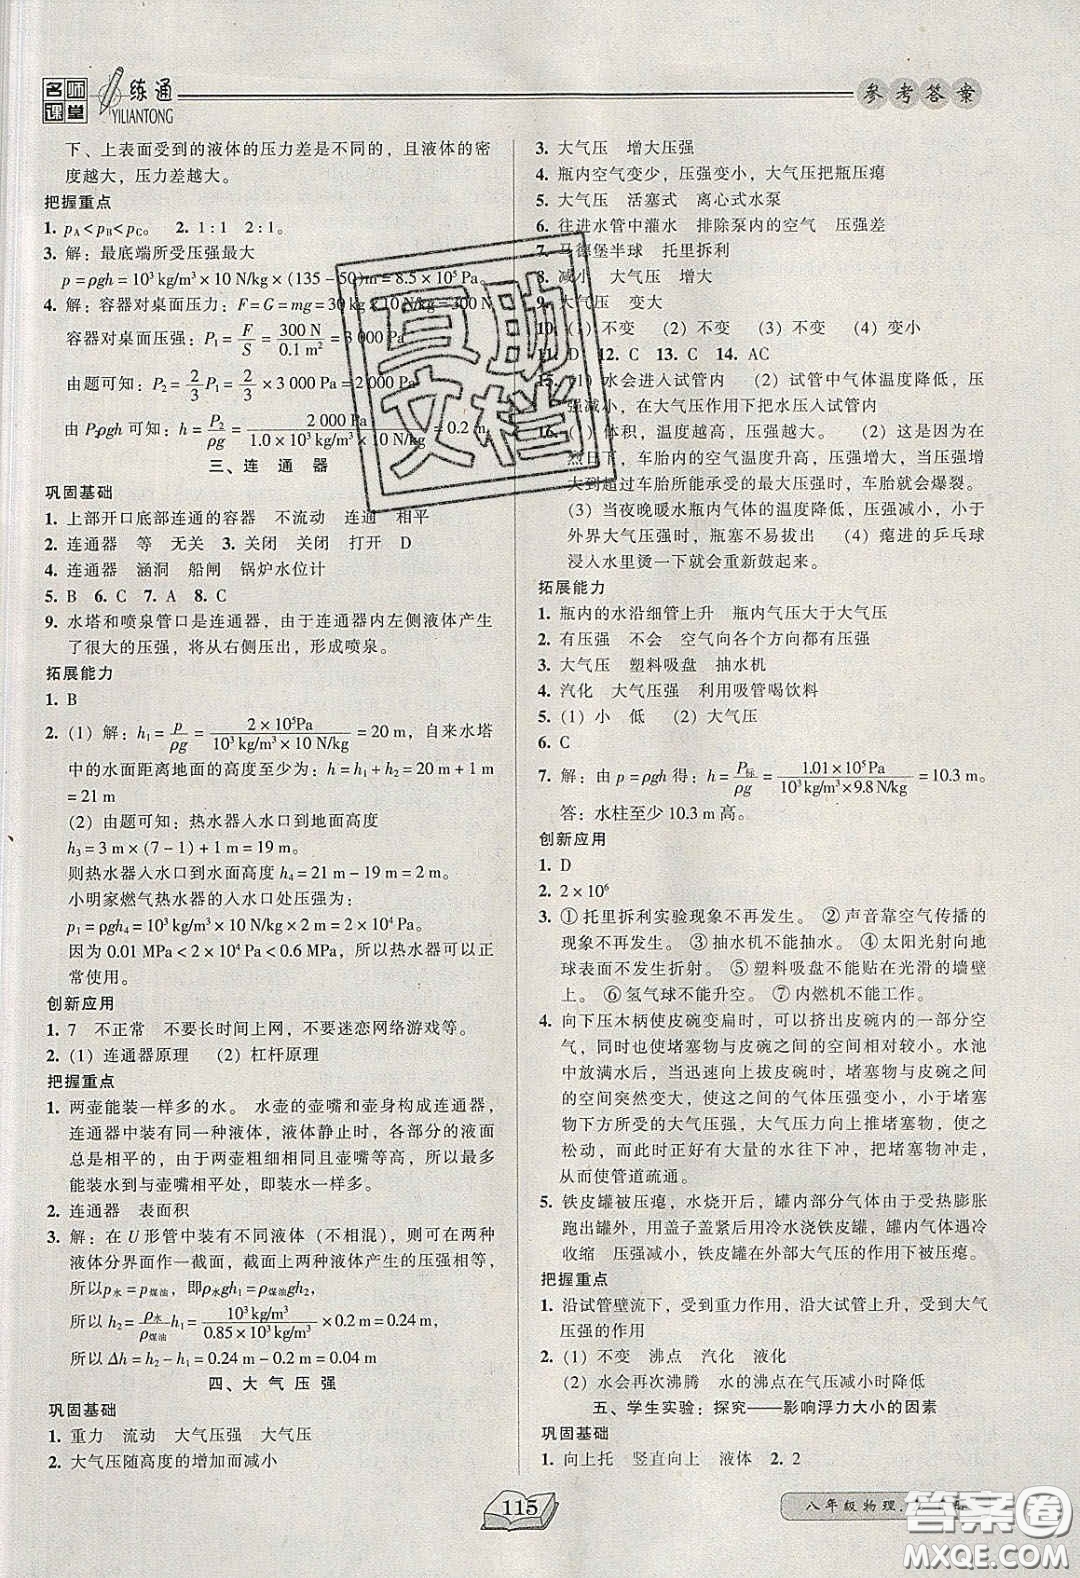 名师课堂 一练通
YILIANTONG
参考答案
下、上表面受到的液体的压力差是不同的，且液体的密
度越大，压力差越大。
把握重点
1. pA<pB<pC。 2. 1∶1 2∶1。
3. 解：最底端所受压强最大
p=ρgh=10³ kg/m³×10 N/kg×(135－50)m=8.5×10⁵Pa
4. 解：容器对桌面压力：F=G=mg=30 kg×10 N/kg=300 N
容器对桌面压强：P₁=F/S=300 N/0.1 m²=3 000 Pa
由题可知：P₂=2/3 P₁=2/3×3 000 Pa=2 000 Pa
由 P₂ρgh 可知：h=P₂/ρg=2 000 Pa/1.0×10³ kg/m³×10 N/kg=0.2 m
三、连 通 器
巩固基础
1. 上部开口底部连通的容器 不流动 连通 相平
2. 连通器 等 无关 3. 关闭 关闭 打开 D
4. 连通器 涵洞 船闸 锅炉水位计
5. B 6. C 7. A 8. C
9. 水塔和喷泉管口是连通器，由于连通器内左侧液体产生
了很大的压强，将从右侧压出，形成喷泉。
拓展能力
1. B
2. (1) 解：h₁=p/ρg=2×10⁵Pa/10³ kg/m³×10 N/kg=20 m，自来水塔
中的水面距离地面的高度至少为：h=h₁+h₂=20 m+1 m
=21 m
(2) 由题可知：热水器入水口到地面高度
h₃=3 m×(7－1)+1 m=19 m。
则热水器入水口到水面高度 h₄=21 m－19 m=2 m。
小明家燃气热水器的入水口处压强为：
p₁=ρgh₄=10³ kg/m³×10 N/kg×2 m=2×10⁴ Pa。
因为 0.01 MPa<2×10⁴ Pa<0.6 MPa，所以热水器可以正
常使用。
创新应用
1. 7 不正常 不要长时间上网，不要迷恋网络游戏等。
2. (1) 连通器原理 (2) 杠杆原理
把握重点
1. 两壶能装一样多的水。 水壶的壶嘴和壶身构成连通器，
连通器中装有同一种液体，液体静止时，各部分的液面
总是相平的，由于两壶粗细相同且壶嘴等高，所以最多
能装水到与壶嘴相平处，即装水一样多。
2. 连通器 表面积
3. 解：在 U 形管中装有不同液体（不相混），则在两种
液体分界面作一截面，截面上两种液体产生的压强相等，
所以p水=p煤油，即ρ水gh₁=ρ煤油gh₂，
所以 h₂=ρ水/ρ煤油 h₁=10³ kg/m³/0.85×10³ kg/m³×0.2 m=0.24 m，
所以 Δh=h₂－h₁=0.24 m－0.2 m=0.04 m
四、大 气 压 强
巩固基础
1. 重力 流动 大气压强 大气压
2. 大气压随高度的增加而减小
3. 大气压 增大压强
4. 瓶内空气变少，压强变小，大气压把瓶压瘪
5. 大气压 活塞式 离心式水泵
6. 往进水管中灌水 排除泵内的空气 压强差
7. 马德堡半球 托里拆利
8. 减小 大气压 增大
9. 大气压 变大
10. (1) 不变 (2) 不变 (3) 不变 (4) 变小
11. D 12. C 13. C 14. AC
15. (1) 水会进入试管内 (2) 试管中气体温度降低，压
强减小，在大气压作用下把水压入试管内
16. (1) 体积，温度越高，压强越大。 (2) 这是因为在
烈日下，车胎内的空气温度升高，压强增大，当压强增
大到超过车胎所能承受的最大压强时，车胎就会爆裂。
(3) 当夜晚暖水瓶内气体的温度降低，压强减小，小于
外界大气压强时，瓶塞不易拔出 (4) 瘪进的乒乓球
浸入水里烫一下就会重新鼓起来。
拓展能力
1. 瓶内的水沿细管上升 瓶内气压大于大气压
2. 有压强 不会 空气向各个方向都有压强
3. 大气压 塑料吸盘 抽水机
4. 汽化 大气压强 利用吸管喝饮料
5. (1) 小 低 (2) 大气压
6. C
7. 解：由 p=ρgh 得：h=P标/ρg=1.01×10⁵Pa/10³ kg/m³×9.8 N/kg=10.3 m。
答：水柱至少 10.3 m 高。
创新应用
1. D
2. 2×10⁶
3. ① 托里拆利实验现象不再发生。 ② 声音靠空气传播的
现象不再发生。 ③ 抽水机不能抽水。 ④ 太阳光射向地
球表面不发生折射。 ⑤ 塑料吸盘不能贴在光滑的墙壁
上。 ⑥ 氢气球不能升空。 ⑦ 内燃机不能工作。
4. 向下压木柄使皮碗变扁时，可以挤出皮碗内的一部分空
气，同时也使堵塞物与皮碗之间的空间相对较小。水池
中放满水后，迅速向上提起木柄时，堵塞物与皮碗之间
的空间突然变大，使这之间的气体压强变小，小于堵塞
物下方的大气压强，大气压力向上推堵塞物，使之
松动，而此时正好有大量的水往下冲，把堵塞物冲走，
从而使管道疏通。
5. 铁皮罐被压瘪，水烧开后，罐内部分气体由于受热膨胀
跑出罐外，用盖子盖紧后用冷水浇铁皮罐，罐内气体遇冷
收缩 压强减小，铁皮罐在外部大气压的作用下被压瘪。
把握重点
1. 沿试管壁流下，受到重力作用，沿大试管上升，受到大气
压强的作用
2. (1) 不变 沸点 汽化 液化
(2) 水会再次沸腾 水的沸点在气压减小时降低
五、学生实验：探究——影响浮力大小的因素
巩固基础
1. 向上托 竖直向上 液体 2. 2
115
八年级物理
互助文档
答案圈
MXQE.COM